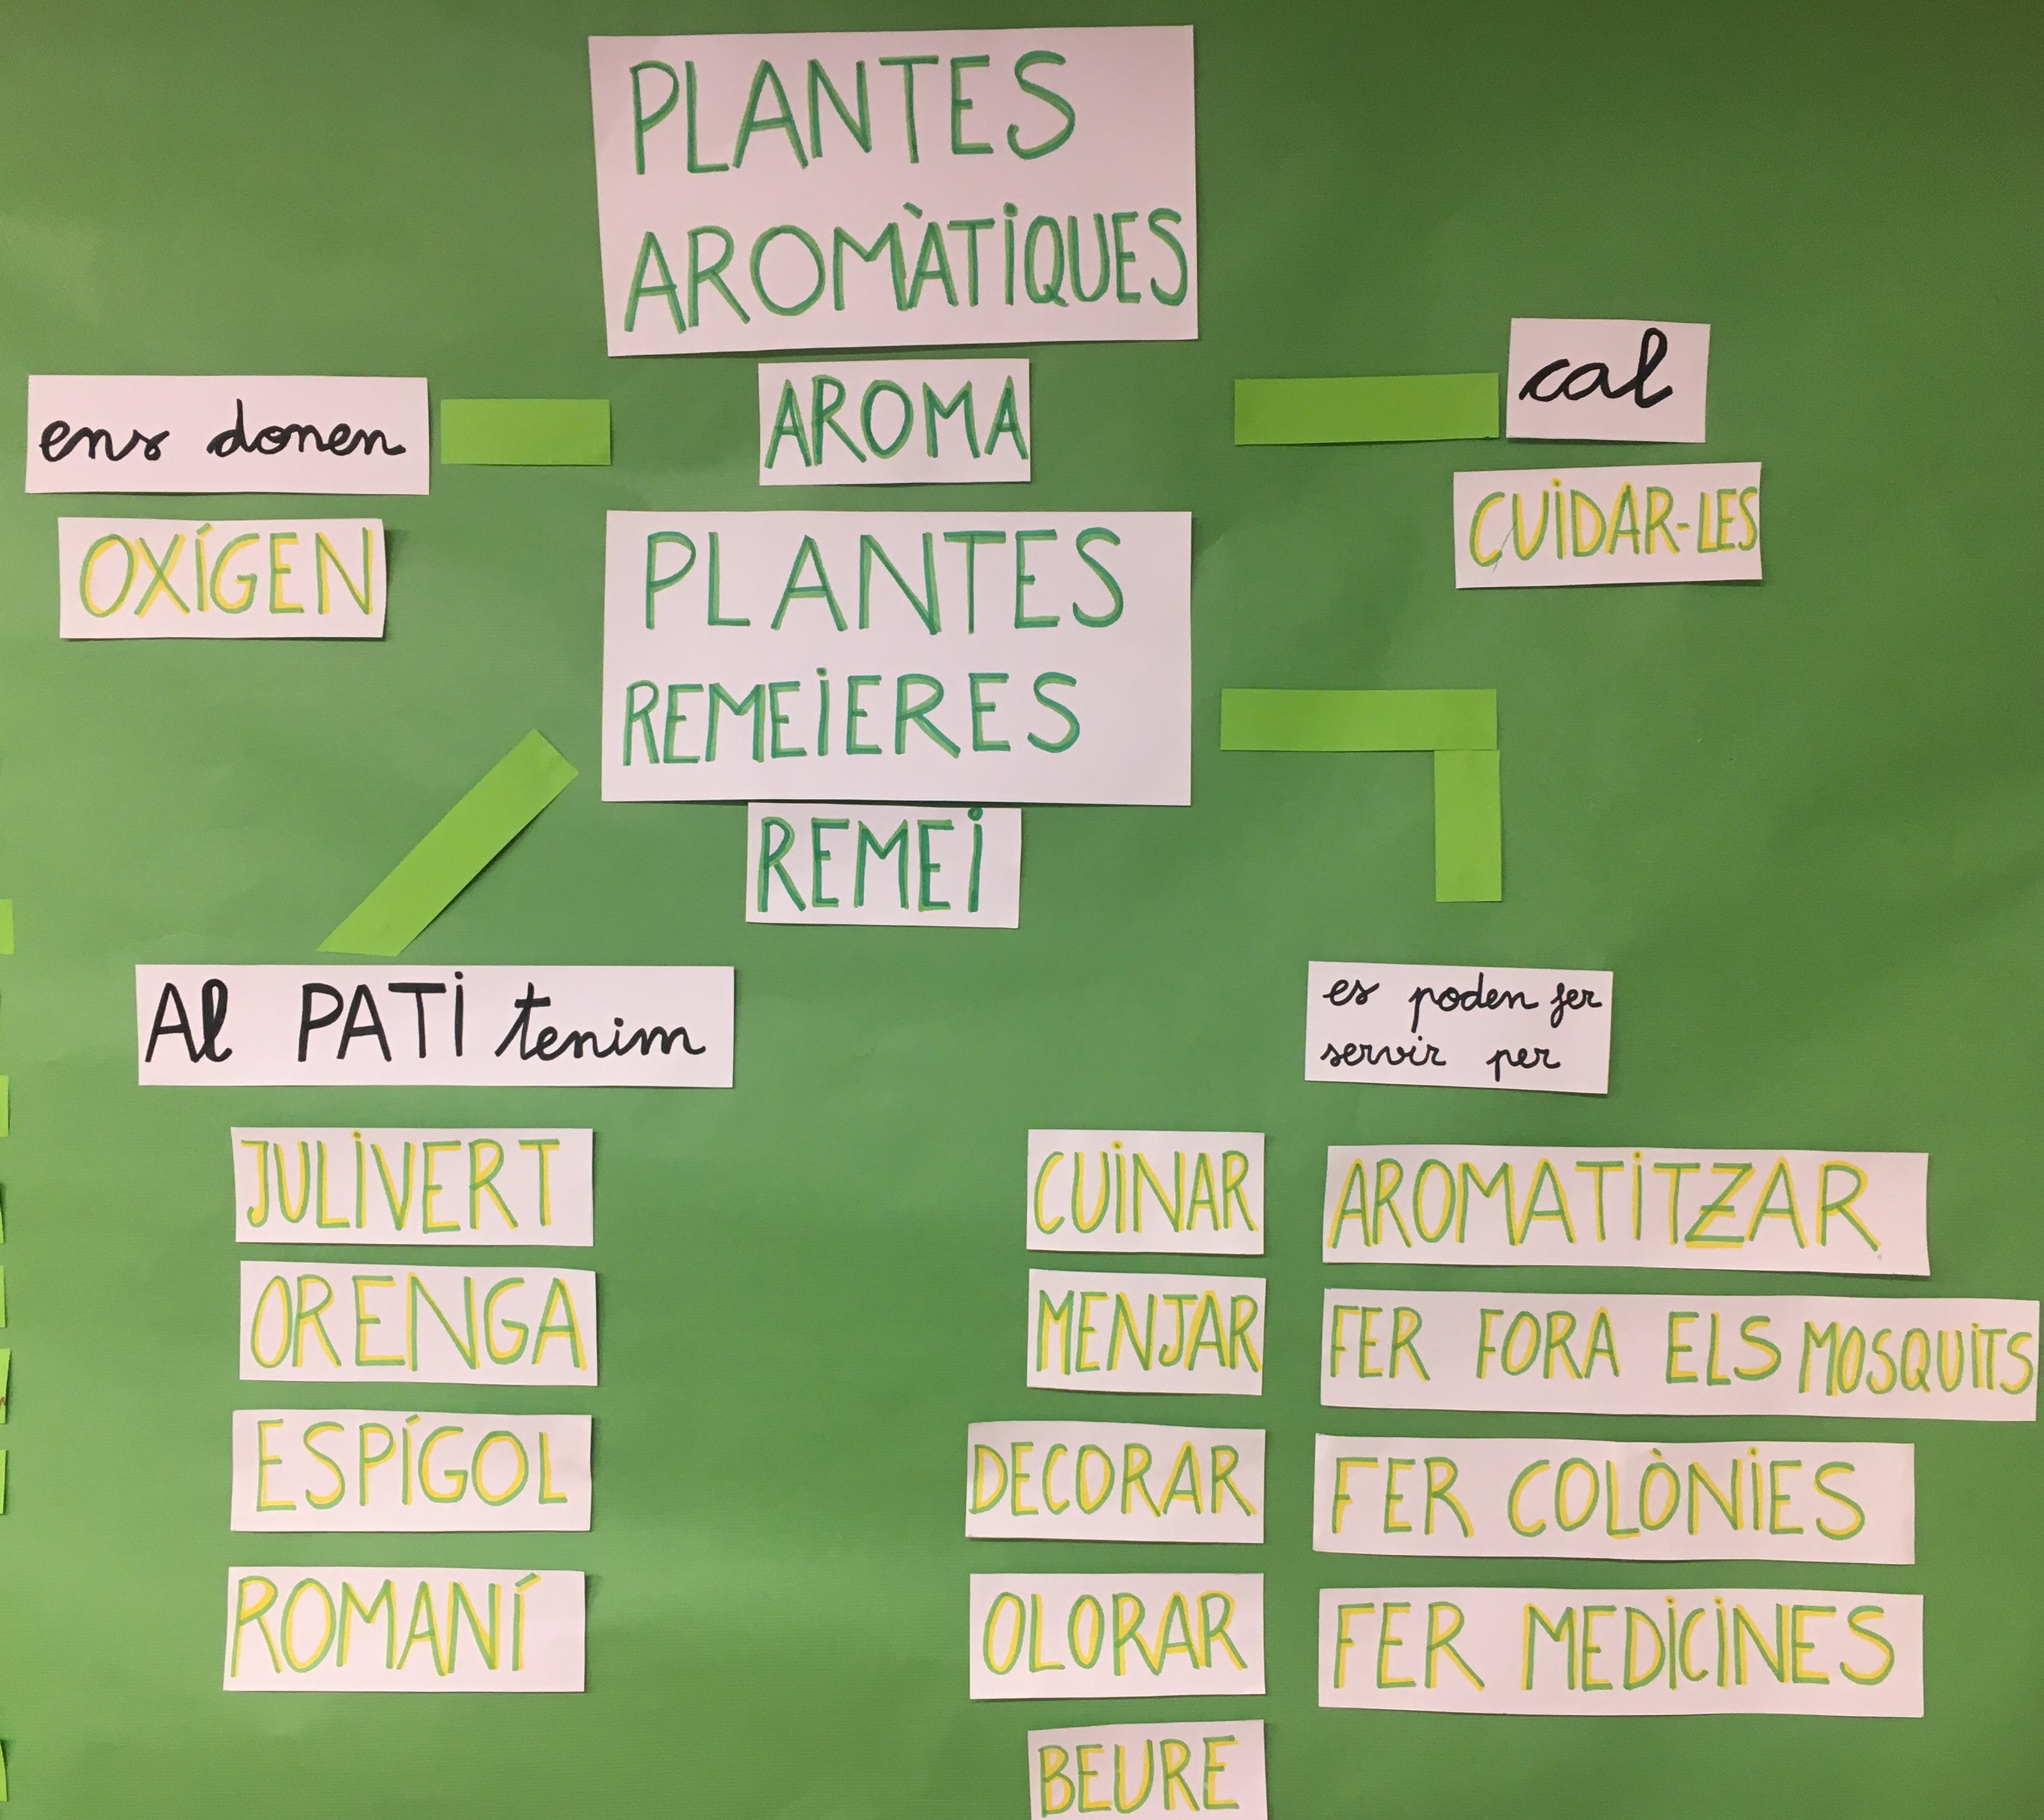 PLANTES
AROMÀTIQUES
AROMA
ens donen
OXÍGEN
cal
CUIDAR-LES
PLANTES
REMEIERES
REMEI
Al PATI tenim
JULIVERT
ORENGA
ESPÍGOL
ROMANÍ
es poden fer
servir per
CUINAR
MENJAR
DECORAR
OLORAR
BEURE
AROMATITZAR
FER FORA ELS MOSQUITS
FER COLÒNIES
FER MEDICINES